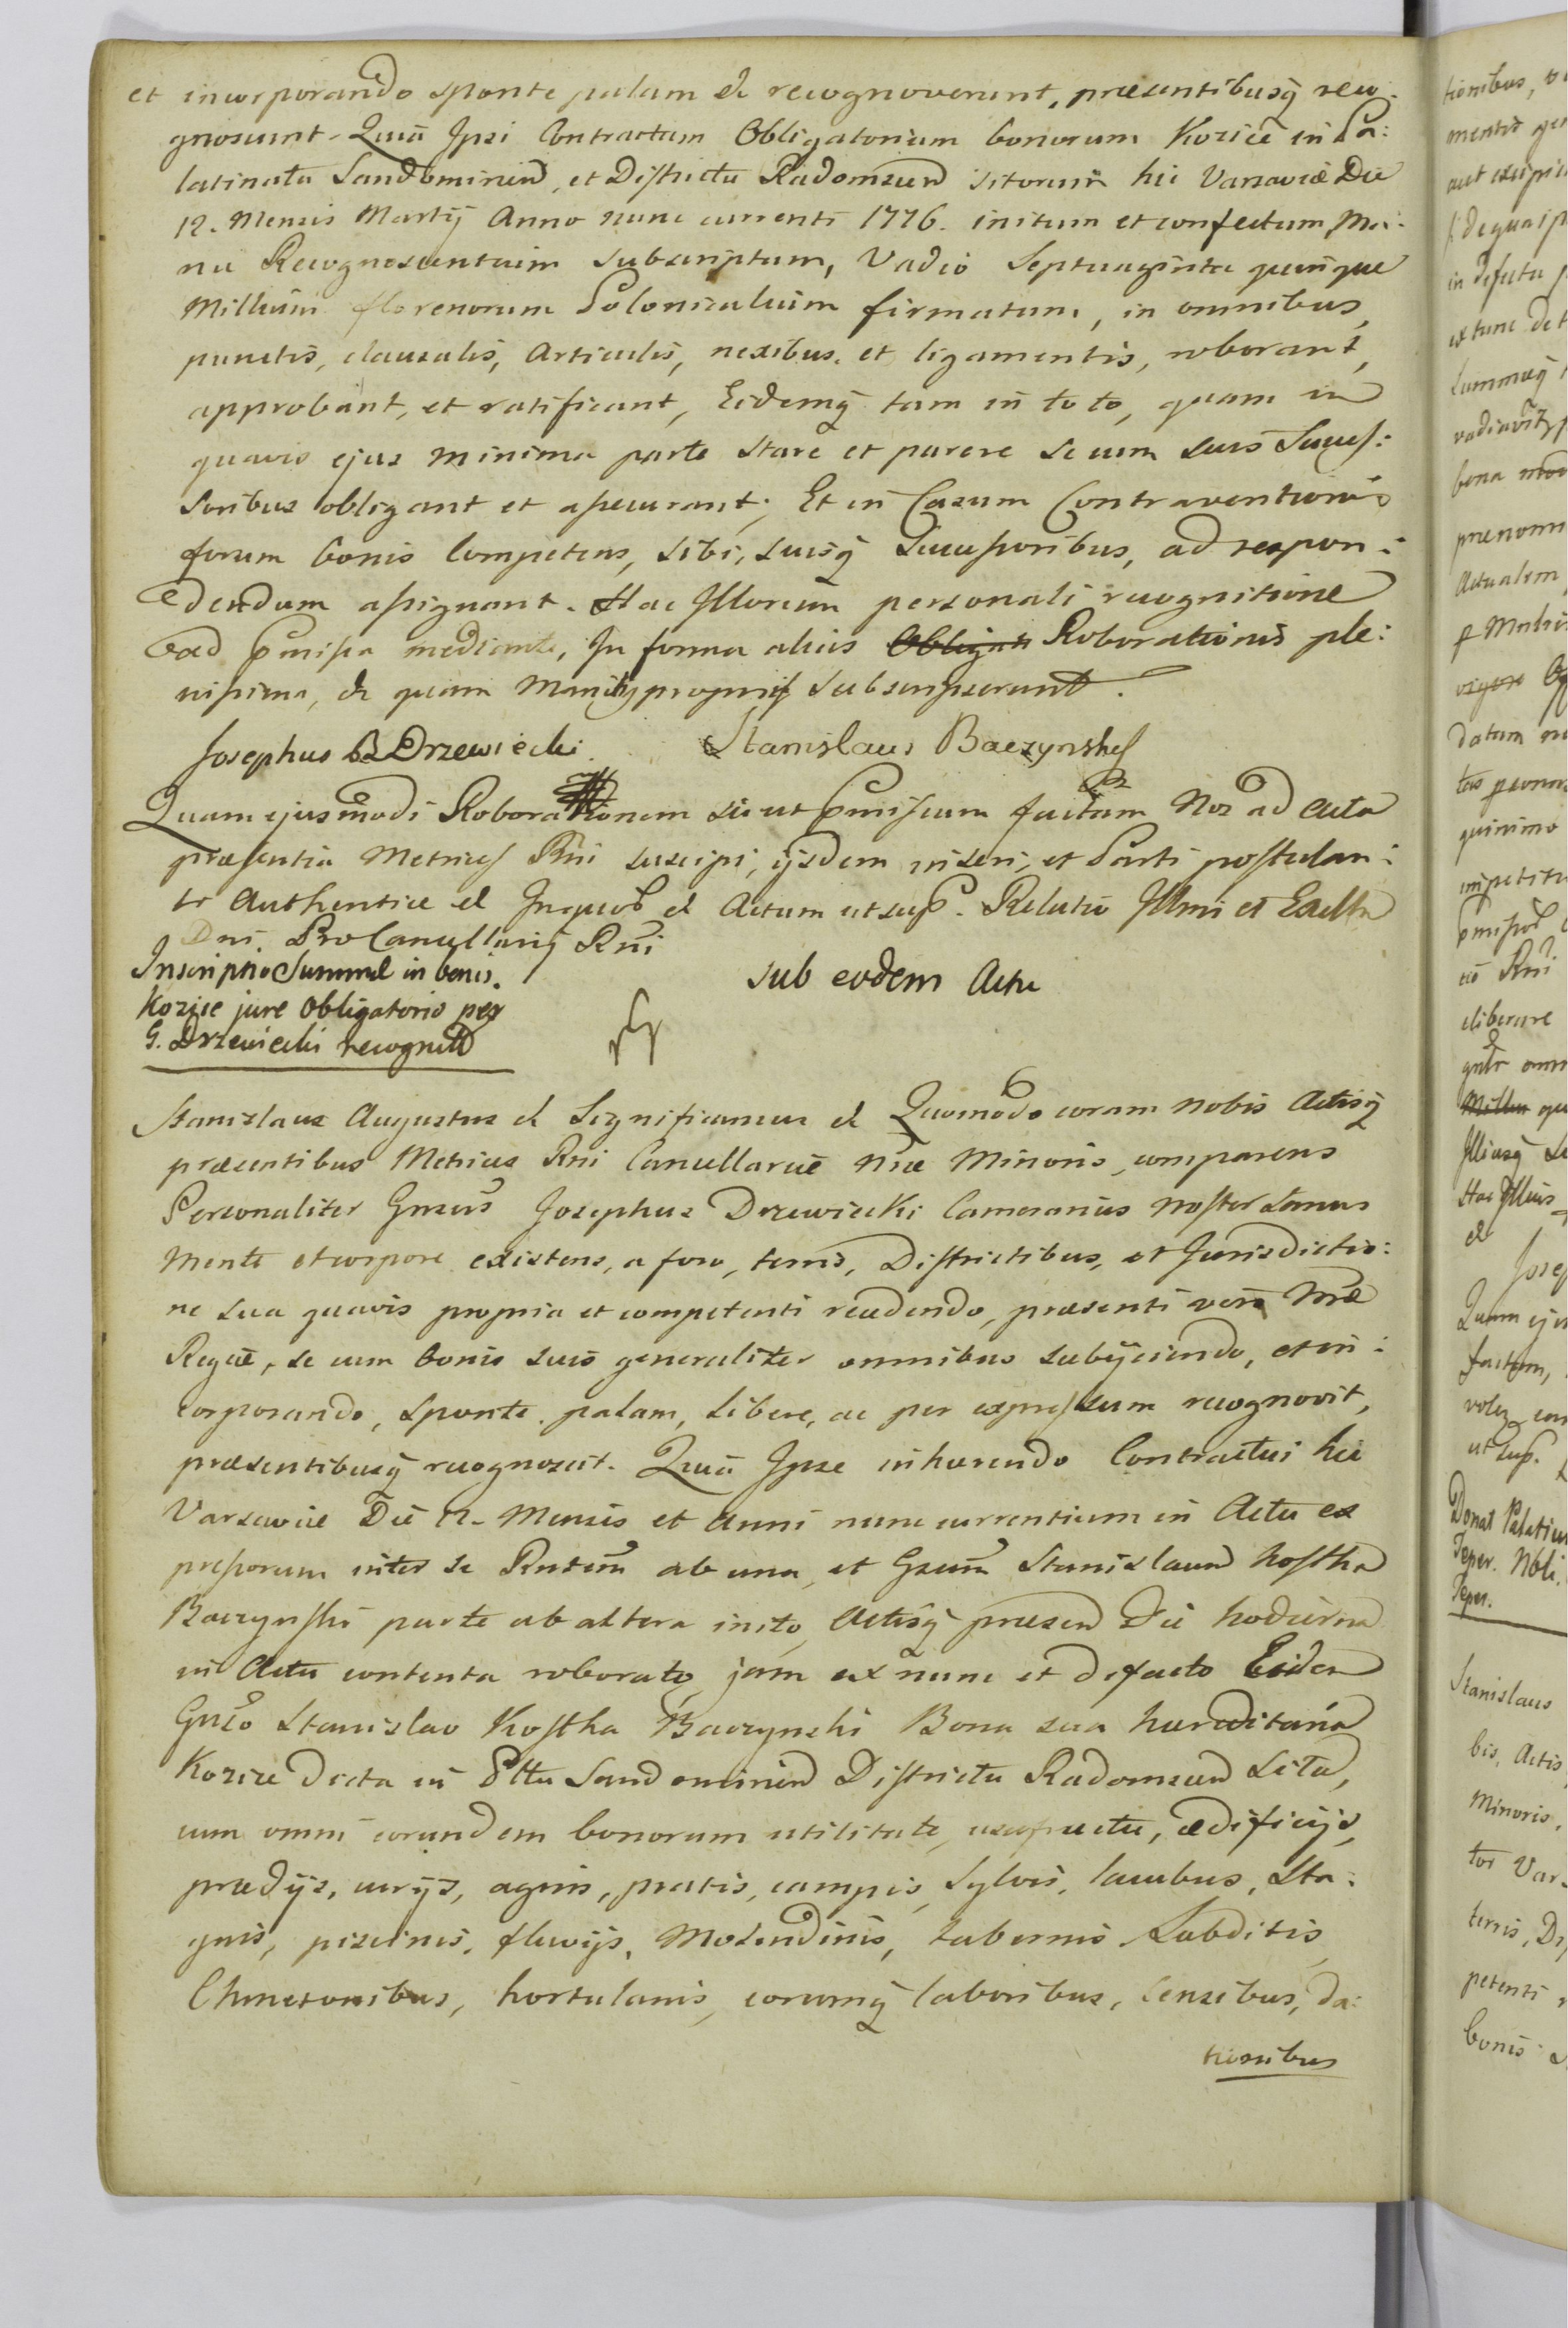 et incorporando sponte palam et recognoverunt, præsentibusq̃ reco:
gnoscunt. Quia Ipsi Contractum Obligatorium bonorum Kozice in Pa:
latinatu Sandomirien, et Districtu Radomscen sitorum hic Varsaviæ Die
12. Mensis Martij Anno nunc currenti 1776. initum et confectum, Ma:
nu Recognoscentium subscriptum, Vadio Septuaginta quinque
Millium florenorum Polonicalium firmatum, in omnibus,
punctis, clausulis, Articulis, nexibus, et ligamentis, roborant,
approbant, et ratificant, Eidemq̃ tam in toto, quam in
quavis ejus minima parte stare et parere se cum suis Succes:
soribus obligant et assecurant; Et in Casum Contraventionis
forum bonis Competens, sibi, suisq̃ Successoribus, ad respon:
dendum assignant. Hac Illorum personali recognitione
ad præmissa mediante, In forma alias Obligati Roborationis ple:
nissima, et quam Manibq propriis subscripserunt.
Josephus Drzewiecki Stanislaus Baczynski
Quam ejusmodi Roborationem sicut præmissum factam Nos ad acta
præsentia Metrices Rni suscipi, ijsdem inseri, et Parti postulan:
ti Authentice et In quor et Actum ut sup. Relatio Illmi et Excllmi
Dni. ProCancellarij Rni
Inscriptio Summæ in bonis
Kozice jure Obligatorio per
G. Drzewiecki recognita
sub eodem Actu
Stanislaus Augustus et Significamus et Quomodo coram nobis Actisq̃
præsentibus Metrices Rni Cancellariæ nræ Minoris, comparens
Personaliter Gnsus Josephus Drzewiecki Camerarius noster sanus
mente et corpore existens, a foro, terris, Districtibus, et Jurisdictio:
ne sua quavis propria et competenti recedendo, præsenti vero Nræ
Regiæ, se cum bonis suis generaliter omnibus subijciendo, et in:
corporando, sponte, palam, libere, ac per expressum recognovit,
præsentibusq̃ recognoscit. Quia Ipse inhærendo Contractui hic
Varsaviæ Die 12. Mensis et Anni nunc currentium in Actu ex
pressorum inter se Rntem ab una, et Gsum Stanislaum Kostka
Baczynski parte ab altera inito, Actisq̃ præsen Die hodierna
in Actu contenta roborato, jam ex nunc et defacto Eidem
Gnso Stanislao Kostka Baczynski Bona sua hæreditaria
Kozice dicta in Pltu Sandomirien Districtu Radomscen Sita,
cum omni eorundem bonorum utilitate, usufructu, ædificijs,
prædijs, curijs, agris, pratis, campis, Sylvis, lacubus, Sta:
gnis, piscinis, fluvijs, Molendinis, tabernis. Subditis,
Chmetonibus, hortulanis, eorumq̃ laboribus, Censibus, da:
tionibus